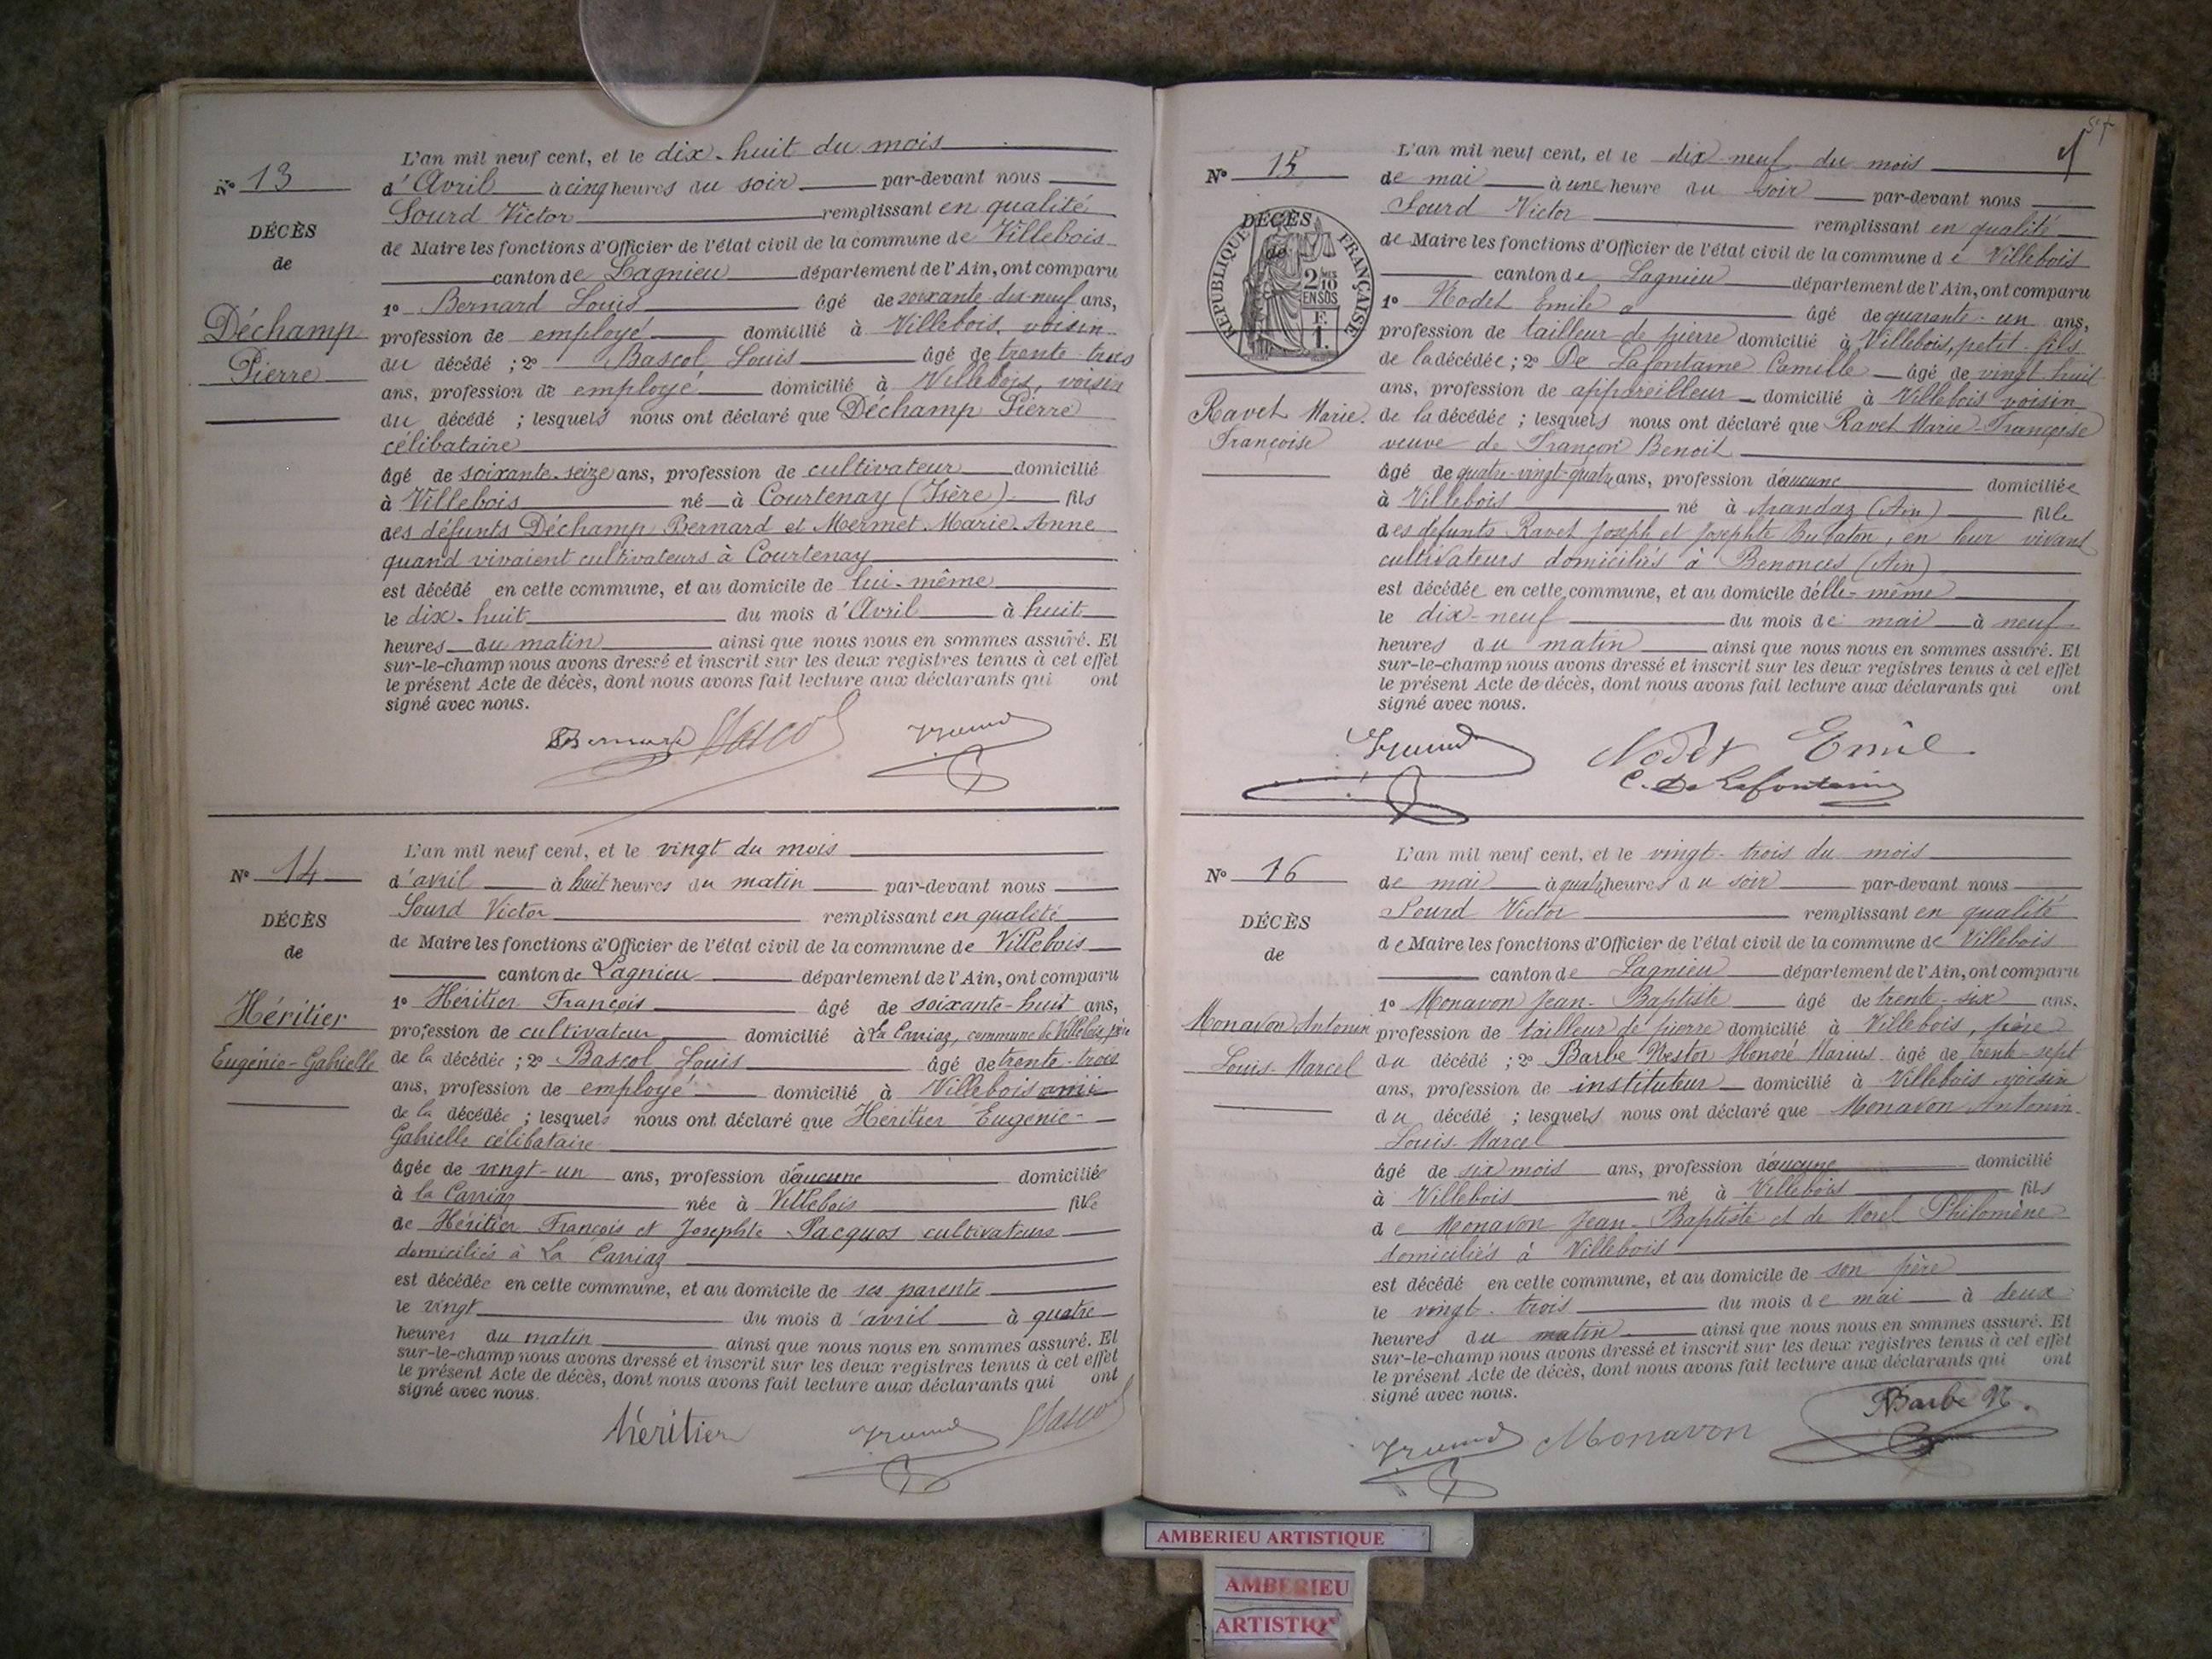 L'an mil neuf cent, et le dix-huit du mois
N° 13
d'Avril à cinq heures du soir par-devant nous
Sourd Victor remplissant en qualité
DÉCÈS
de Maire les fonctions d'Officier de l'état civil de la commune de Villebois
de
canton de Lagnieu département de l'Ain, ont comparu
1° Bernard Louis âgé de soixante-dix-neuf ans,
Déchamp
profession de employé domicilié à Villebois, voisin
Pierre
du décédé ; 2° Bascol Louis âgé de trente-trois
ans, profession de employé domicilié à Villebois, voisin
du décédé ; lesquels nous ont déclaré que Déchamp Pierre
célibataire
âgé de soixante-seize ans, profession de cultivateur domicilié
à Villebois né à Courtenay (Isère) fils
des défunts Déchamp Bernard et Mermet Marie-Anne
quand vivaient cultivateurs à Courtenay
est décédé en cette commune, et au domicile de lui-même
le dix-huit du mois d'Avril à huit
heures du matin ainsi que nous nous en sommes assuré. Et
sur-le-champ nous avons dressé et inscrit sur les deux registres tenus à cet effet
le présent Acte de décès, dont nous avons fait lecture aux déclarants qui ont
signé avec nous.
Bernard Bascol
L'an mil neuf cent, et le vingt du mois
N° 14
d'avril à huit heures du matin par-devant nous
Sourd Victor remplissant en qualité
DÉCÈS
de Maire les fonctions d'Officier de l'état civil de la commune de Villebois
de
canton de Lagnieu département de l'Ain, ont comparu
1° Héritier François âgé de soixante-huit ans,
Héritier
profession de cultivateur domicilié à La Carriaz, commune de Villebois, père
Eugénie-Gabrielle
de la décédée ; 2° Bascol Louis âgé de trente-trois
ans, profession de employé domicilié à Villebois ami
de la décédée ; lesquels nous ont déclaré que Héritier Eugénie-
Gabrielle célibataire
âgée de vingt-un ans, profession d'aucune domiciliée
à la Carriaz née à Villebois fille
de Héritier François et Josephte Pacquos cultivateurs
domiciliés à La Carriaz
est décédée en cette commune, et au domicile de ses parents
le vingt du mois d'avril à quatre
heures du matin ainsi que nous nous en sommes assuré. Et
sur-le-champ nous avons dressé et inscrit sur les deux registres tenus à cet effet
le présent Acte de décès, dont nous avons fait lecture aux déclarants qui ont
signé avec nous.
héritier Bascol
57
L'an mil neuf cent, et le dix-neuf du mois
N° 15
de mai à une heure du soir par-devant nous
Sourd Victor remplissant en qualité
DÉCÈS
de
RÉPUBLIQUE FRANÇAISE
2/10 EN SUS
F. 1.
de Maire les fonctions d'Officier de l'état civil de la commune de Villebois
canton de Lagnieu département de l'Ain, ont comparu
1° Nodet Emile âgé de quarante-un ans,
profession de tailleur de pierre domicilié à Villebois, petit-fils
de la décédée ; 2° De Lafontaine Camille âgé de vingt-huit
ans, profession de appareilleur domicilié à Villebois voisin
Ravet Marie-
Françoise
de la décédée ; lesquels nous ont déclaré que Ravet Marie-Françoise
veuve de Françon Benoit
âgé de quatre-vingt-quatre ans, profession d'aucune domiciliée
à Villebois né à Arandaz (Ain) fille
des défunts Ravet Joseph et Josephte Bubaton, en leur vivant
cultivateurs domiciliés à Benonces (Ain)
est décédée en cette commune, et au domicile d'elle-même
le dix-neuf du mois de mai à neuf
heures du matin ainsi que nous nous en sommes assuré. Et
sur-le-champ nous avons dressé et inscrit sur les deux registres tenus à cet effet
le présent Acte de décès, dont nous avons fait lecture aux déclarants qui ont
signé avec nous.
Nodet Emile
C. De Lafontaine
L'an mil neuf cent, et le vingt-trois du mois
N° 16
de mai à quatre heures du soir par-devant nous
Sourd Victor remplissant en qualité
DÉCÈS
de Maire les fonctions d'Officier de l'état civil de la commune de Villebois
de
canton de Lagnieu département de l'Ain, ont comparu
1° Monavon Jean-Baptiste âgé de trente-six ans,
Monavon Antonin
profession de tailleur de pierre domicilié à Villebois, père
Louis-Marcel
du décédé ; 2° Barbe Nestor Honoré Marius âgé de trente-sept
ans, profession de instituteur domicilié à Villebois voisin
du décédé ; lesquels nous ont déclaré que Monavon Antonin-
Louis-Marcel
âgé de six mois ans, profession d'aucune domicilié
à Villebois né à Villebois fils
de Monavon Jean-Baptiste et de Morel Philomène
domiciliés à Villebois
est décédé en cette commune, et au domicile de son père
le vingt-trois du mois de mai à deux
heures du matin ainsi que nous nous en sommes assuré. Et
sur-le-champ nous avons dressé et inscrit sur les deux registres tenus à cet effet
le présent Acte de décès, dont nous avons fait lecture aux déclarants qui ont
signé avec nous.
Monavon Barbe N.
AMBERIEU ARTISTIQUE
AMBERIEU
ARTISTIQ